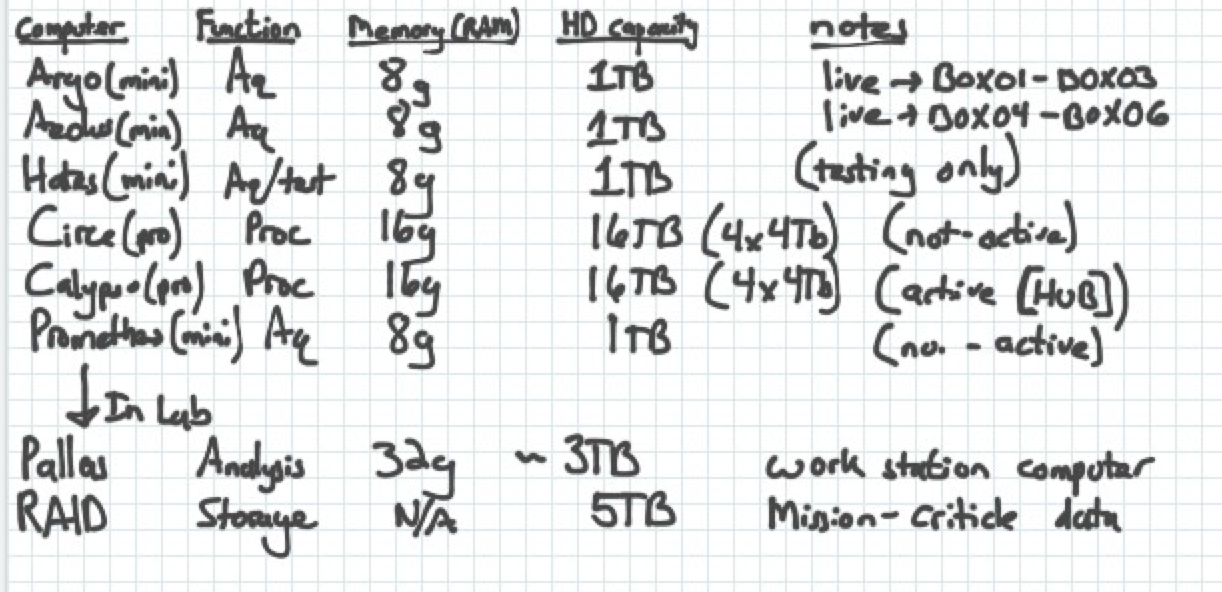 Computer Function Memory (RAM) HD capacity notes
Argo (mini) Aq 8g 1TB live → BOX01 - BOX03
(min) Aq 8g 1TB live → BOX04 - BOX06
(mini) Aq/test 8g 1TB (testing only)
Circe (pro) Proc 16g 16TB (4x4Tb) (not-active)
Calypso (pro) Proc 16g 16TB (4x4Tb) (active [HUB])
(mini) Aq 8g 1TB (no. - active)
↓ In Lab
Pallas Analysis 32g ~ 3TB work station computer
RAID Storage N/A 5TB Mission-criticle data